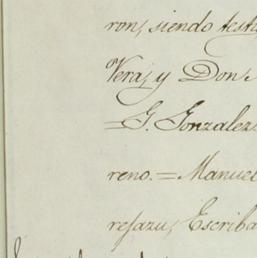 ron, siendo testi
Vera, y Don
=G. Gonzalez
reno.=Manuel
refazu, Escriba